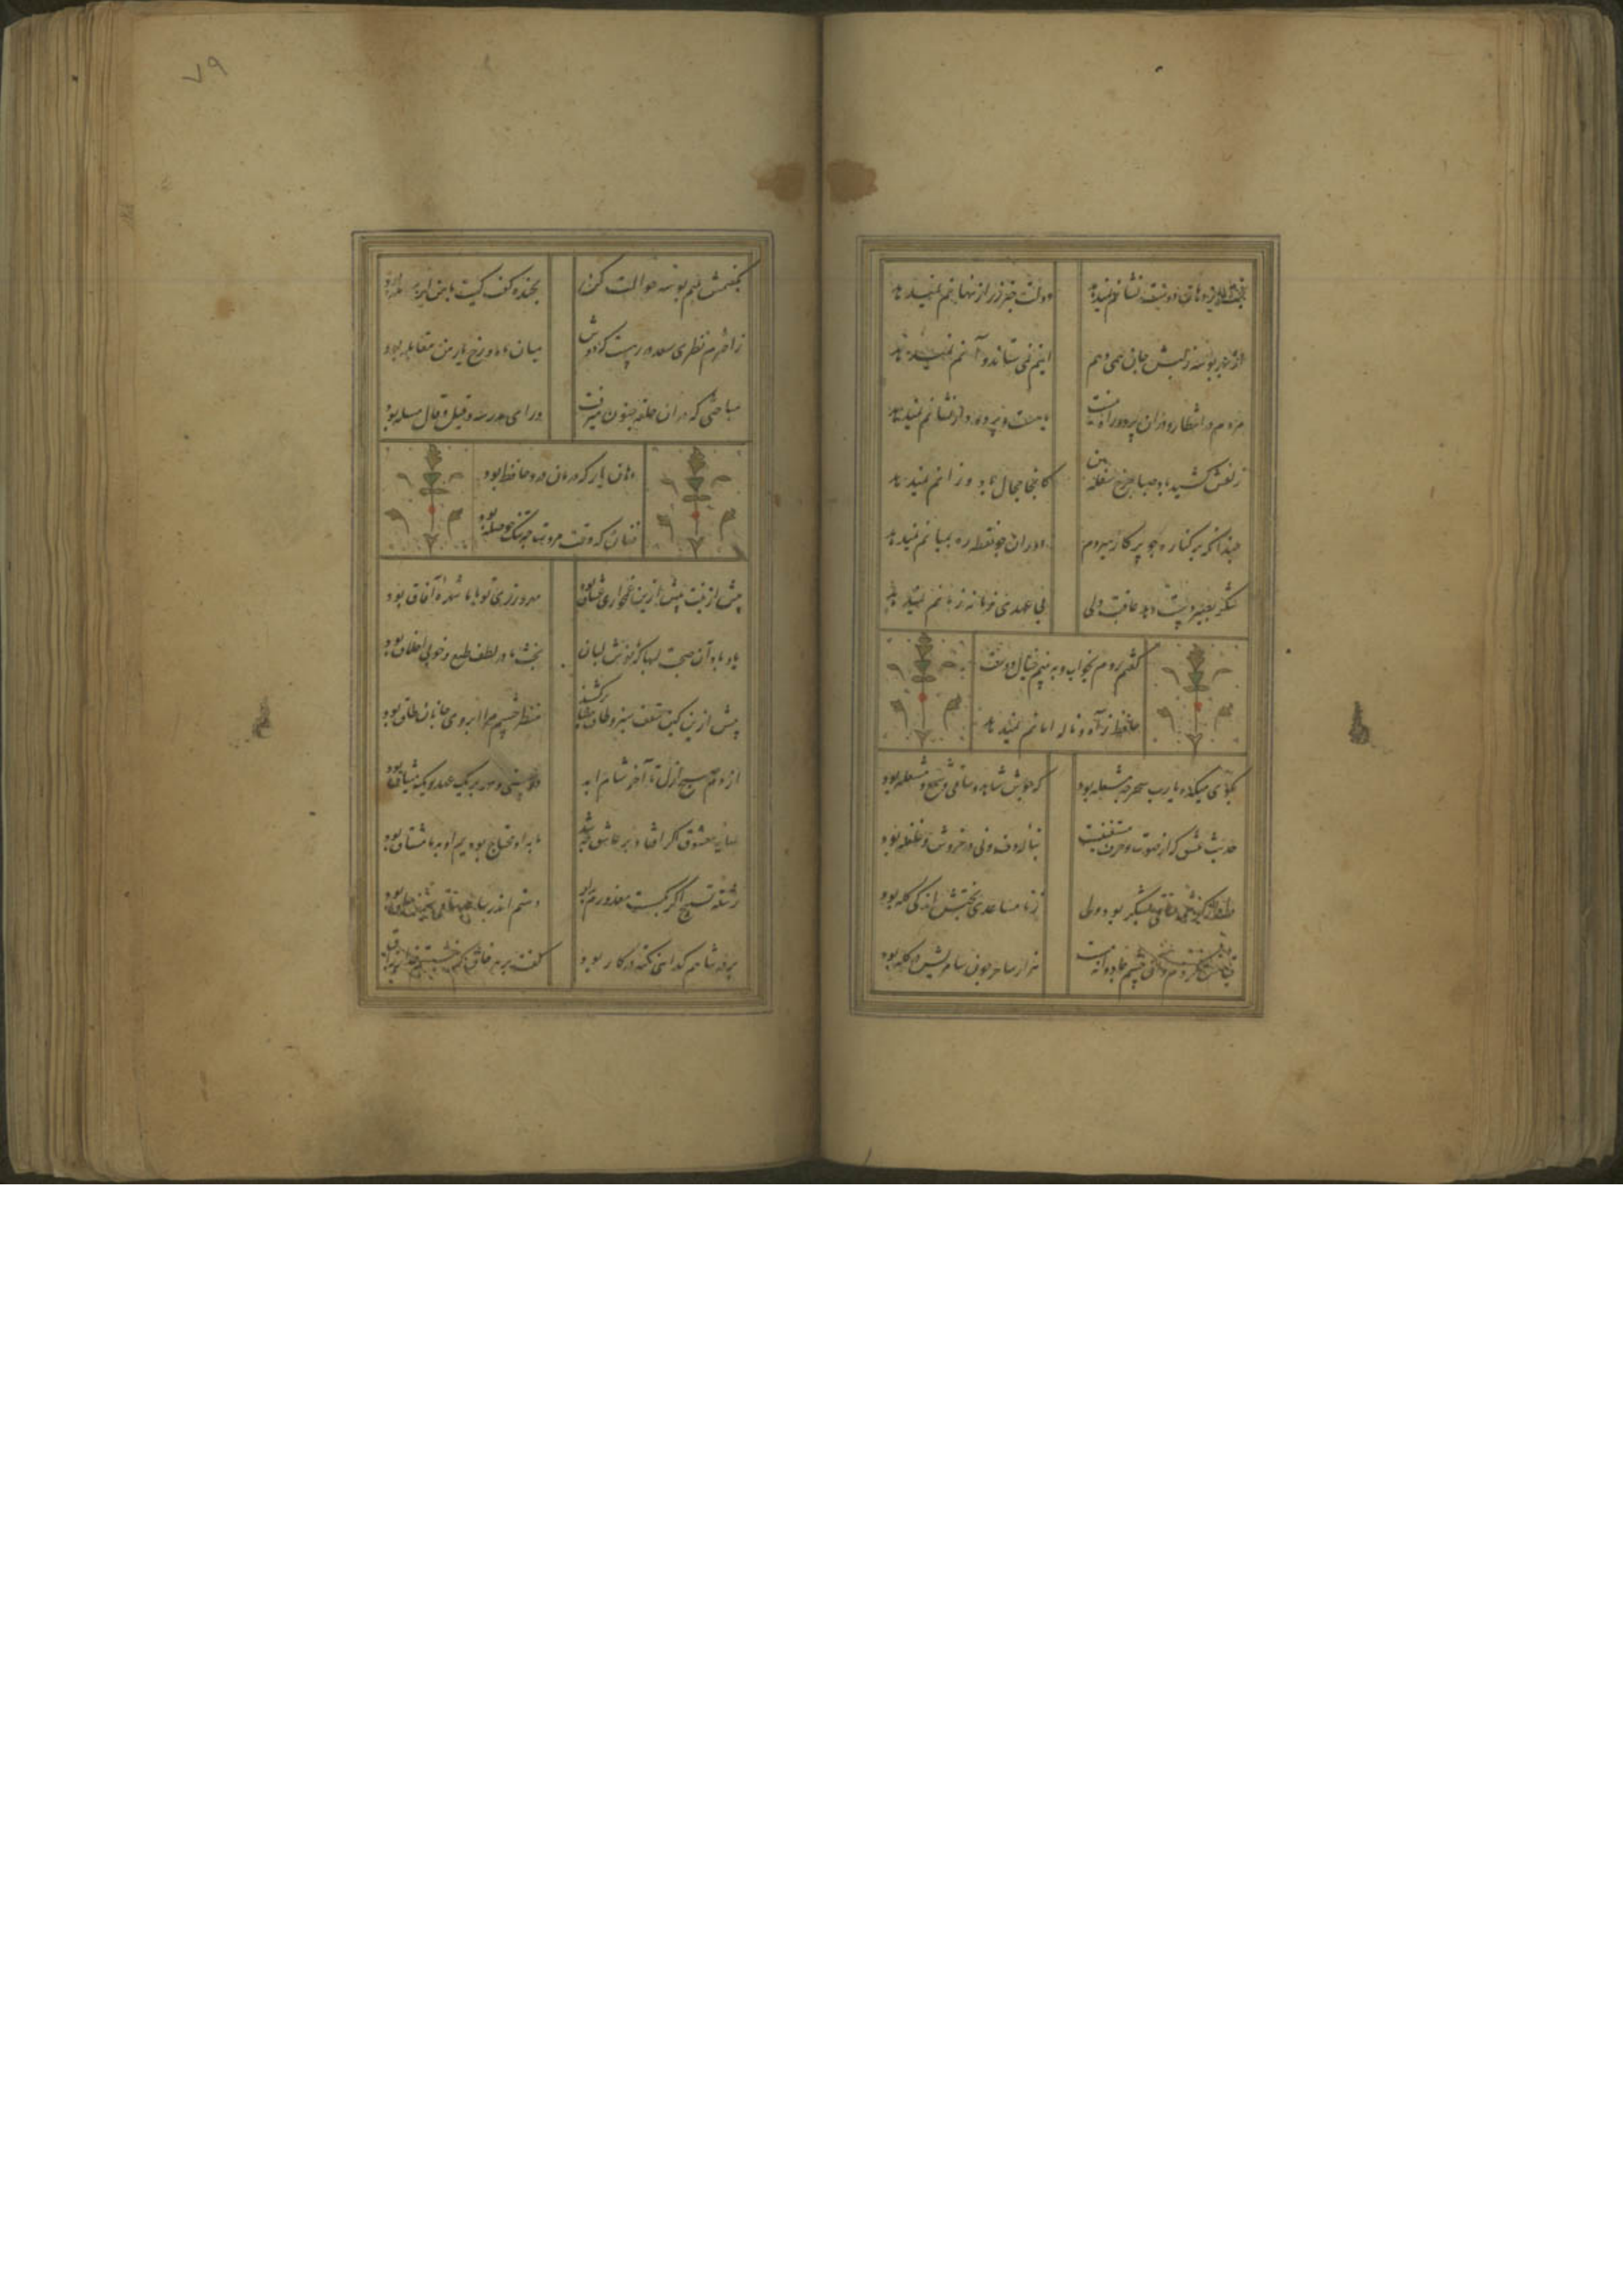 بخت از دهان دوست نشانم نمیدهد
دولت خبر ز راز نهانم نمیدهد
از بهر بوسهٔ ز لبش جان همی دهم
اینم نمی ستاند و آنم نمیدهد
مردم در انتظار و در آن پرده راه نیست
یا هست و پرده دار نشانم نمیدهد
زلفش کشید باد صبا چرخ سفله بین
کانجا مجال باد وزانم نمیدهد
چندانکه بر کناره چو پرکار میروم
دوران چو نقطه ره بمیانم نمیدهد
شکر بصبر دست دهد عاقبت ولی
بد عهدی زمانه زمانم نمیدهد
گفتم روم بخواب و به بینم خیال دوست
حافظ ز آه و ناله امانم نمیدهد
بکوی میکده یارب سحر چه مشغله بود
که جوش شاهد و ساقی و شمع و مشعله بود
حدیث عشق که از صوت و حرف مستغنیست
بنالهٔ دف و نی در خروش و غلغله بود
ز نا مساعدی بختش اندکی گله بود
قیاس کردم و آن چشم جادوانه مست
هزار ساحر چون سامریش در گله بود
بگفتمش بلبم بوسه حوالت کن
بخنده گفت کیت با من این معامله بود
ز اخترم نظری سعد در رهست که دوش
میان ماه و رخ یار من مقابله بود
مباحثی که در ان حلقه جنون میرفت
ورای مدرسه و قیل و قال مسله بود
دهان یار که درمان درد حافظ بود
فغان که وقت مروت چه تنگ حوصله بود
پیش ازینت بیش ازین غمخواری عشاق بود
مهر ورزی تو با ما شهرهٔ آفاق بود
یاد باد آن صحبت شبها که با نوش لبان
بحث ما در لطف طبع و خوبی اخلاق بود
پیش ازین کین سقف سبز و طاق مینا برکشند
منظر چشم مرا ابروی جانان طاق بود
از دم صبح ازل تا آخر شام ابد
دوستی و مهر بر یک عهد و یک میثاق بود
سایهٔ معشوق اگر افتاد بر عاشق چه شد
ما به او محتاج بودیم او به ما مشتاق بود
رشته تسبیح اگر بگسست معذورم بدار
دستم اندر ساعد ساقی سیمین ساق بود
بر در شاهم گدایی نکته در کار بود
گفت بر هر خوان که بنشستم خدا رزاق بود
۷۹